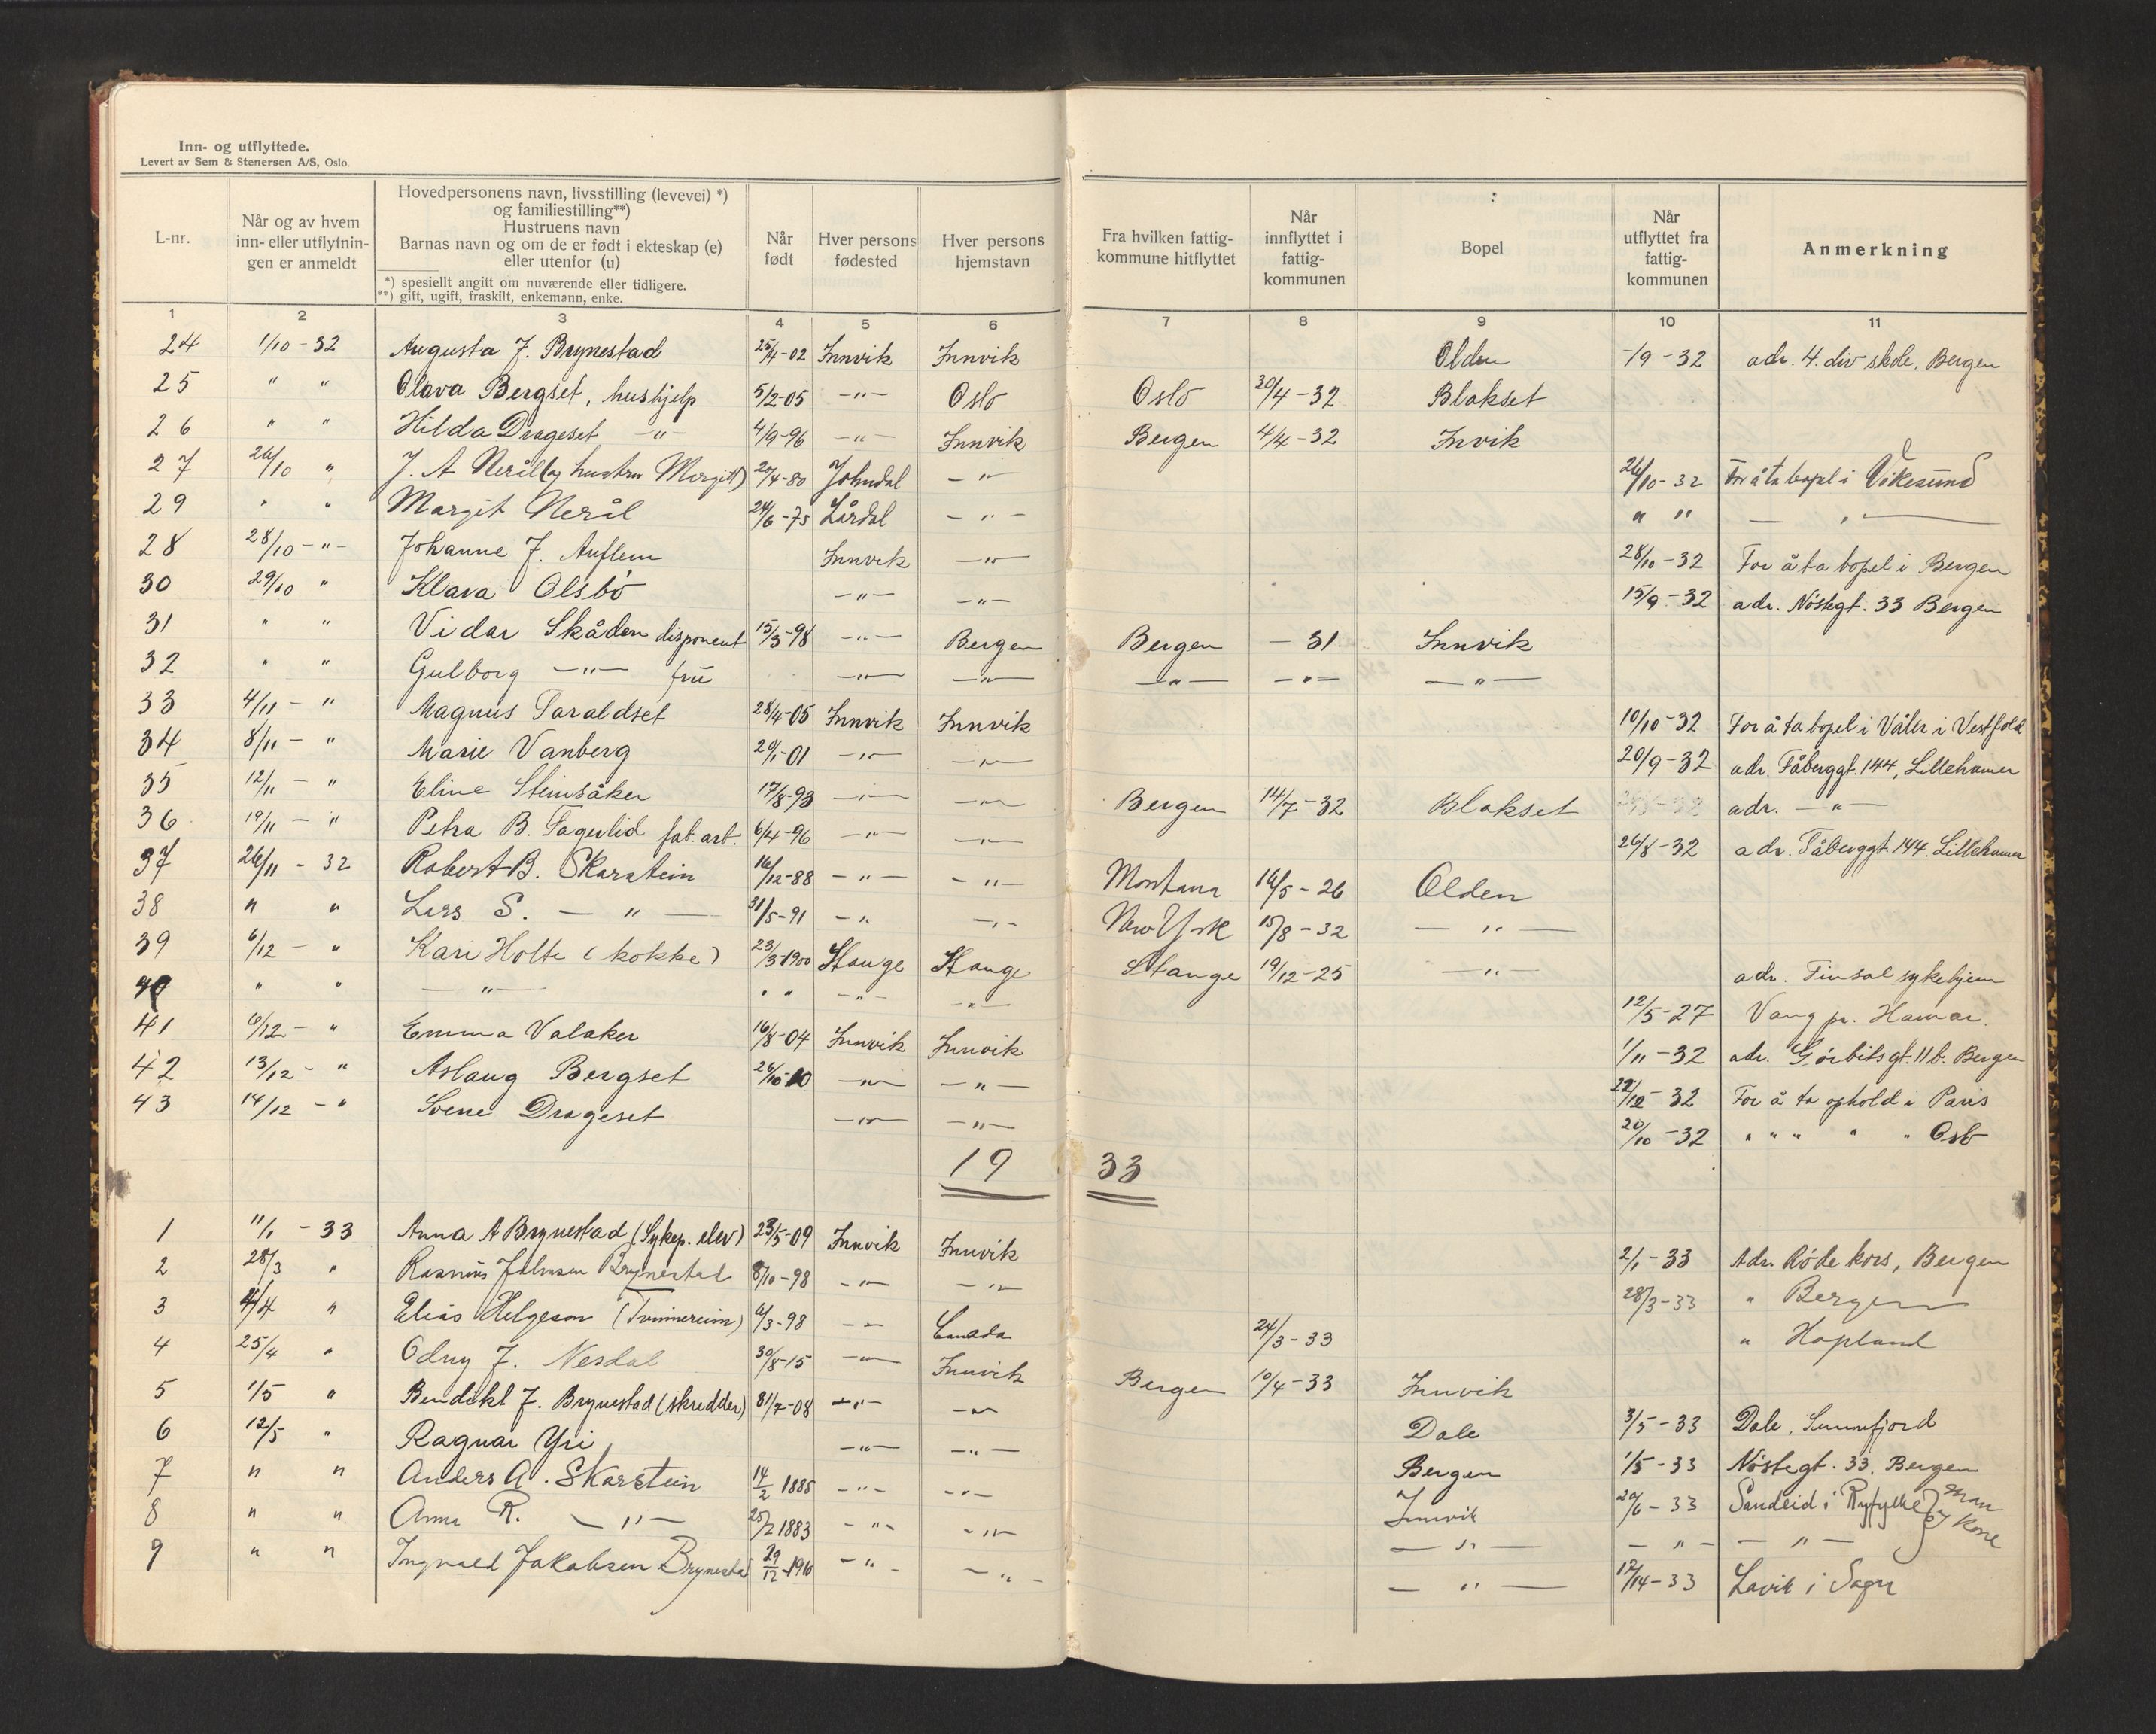 Inn- og utflyttede.
Levert av Sem & Stenersen A/S, Oslo.
L-nr.
Når og av hvem inn- eller utflytnin-gen er anmeldt
Hovedpersonens navn, livsstilling (levevei) *)
og familiestilling**)
Hustruens navn
Barnas navn og om de er født i ekteskap (e)
eller utenfor (u)
*) spesiellt angitt om nuværende eller tidligere.
**) gift, ugift, fraskilt, enkemann, enke.
Når født
Hver persons fødested
Hver persons hjemstavn
Fra hvilken fattig-kommune hitflyttet
Når innflyttet i fattig-kommunen
Bopel
Når utflyttet fra fattig-kommunen
Anmerkning
1 2 3 4 5 6 7 8 9 10 11
24 1/10-32 Augusta J. Brynestad 25/4-02 Innvik Innvik Olden -/9-32 adr. 4. div skole, Bergen
25 " " Olava Bergset, hushjelp 5/2-05 -"- Oslo Oslo 30/4-32 Blakset
26 " " Hilda Drageset -"- 4/9-96 -"- Innvik Bergen 4/4-32 Invik
27 26/10 " J. A Nerål (og hustru Margitt) 20/4-80 Johndal -"- 26/10-32 For å ta bopel i Vikesund
29 " " Margit Nerål 24/6-75 Lårdal -"- " " -"-
28 28/10-"- Johanne J. Auflem Innvik -"- 28/10-32 For å ta bopel i Bergen
30 29/10 " Klara Olsbø -"- -"- 15/9-32 adr. Nøstegt. 33 Bergen
31 " " Vidar Skåden disponent 15/3-98 -"- Bergen Bergen -31 Innvik
32 " " Gulborg -"- frü -"- -"- -"- -"- -"-
33 4/11-" Magnus Taraldset 28/4-05 Innvik Innvik 10/10-32 For å ta bopel i Våler i Vestfold
34 8/11-" Marie Vanberg 20/1-01 -"- -"- 20/9-32 adr. Fåberggt. 144, Lillehamer
35 12/11-" Eline Steinsåker 17/8-93 -"- -"- Bergen 14/7-32 Blakset adr. -"-
36 19/11-" Petra B. Fagerlid fab. arb. 6/4-96 -"- -"- 26/8-32 adr. Fåberggt. 144. Lillehamer
37 26/11-32 Robert B. Skarstein 16/12-88 -"- -"- Montana 16/5-26 Olden
38 " " Lars S. -"- 31/5-91 -"- -"- New York 15/8-32 -"-
39 6/12-" Kari Holte (kokke) 23/3-1900 Stange Stange Stange 19/12-25 -"- adr. Finsal sykehjem
40 " " -"- " " -"- -"- 12/5-27 Vang pr. Hamar.
41 6/12-" Emma Valaker 16/8-04 Innvik Innvik 1/11-32 adr. Gørbitsgt. 11b. Bergen
42 13/12-" Aslaug Bergset 26/10-10 -"- -"- 22/12-32 For å ta ophold i Paris
43 14/12-" Svene Drageset -"- -"- 20/10-32 " " " " " Oslo
19 33
1 11/1-33 Anna A Brynestad (Sykep. elev) 23/5-09 Innvik Innvik 2/1-33 Adr. Røde kors, Bergen
2 28/3 " Rasmus Johnsen Brynestad 8/10-98 -"- -"- 28/3-33 " Bergen
3 4/4 " Elias Helgeson (Tvinnereim) 6/3-98 -"- Canada 24/3-33 " Hopland
4 25/4 " Odny J. Nesdal 30/8-15 -"- Innvik Bergen 10/4-33 Innvik
5 1/5 " Bendikt J. Brynestad (skredder) 31/7-08 -"- -"- Dale 3/5-33 Dale, Sunnfjord
6 12/5 " Ragnar Yri -"- -"- Bergen 1/5-33 Nøstegt. 33, Bergen
7 " " Anders A. Skarstein 14/2 1885 -"- -"- Innvik 20/6-33 Sandeid i Ryfylke } Man og Kone
8 " " Anna R. -"- 25/2 1883 -"- -"- -"- -"- -"-
9 " " Ingvald Jakobsen Brynestad 29/12-1910 -"- -"- -"- 12/14-33 Lavik i Sogn